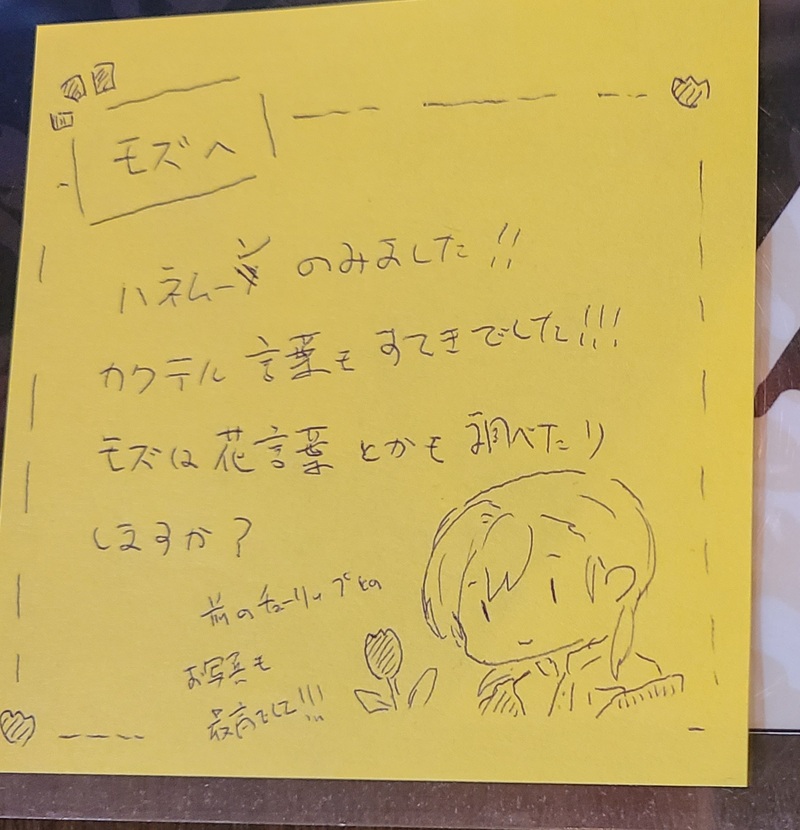 モズへ
ハネムーン のみました!!
カクテル 言葉も すてきでした!!!
モズは 花言葉 とかも 調べたり
しますか?
前のチューリップとの
お写真も
最高でした!!!